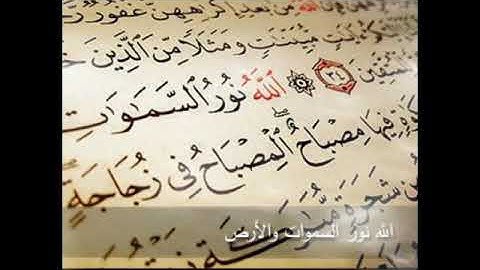 مِنۢ بَعْدِ إِكْرَٰهِهِنَّ غَفُورٌ
مُّبَيِّنَٰتٍ وَمَثَلًا مِّنَ ٱلَّذِينَ
٣٤ ٱللَّهُ نُورُ ٱلسَّمَٰوَٰتِ
فِيهَا مِصْبَاحٌ ٱلْمِصْبَاحُ فِى زُجَاجَةٍ
مِن شَجَرَةٍ
الله نور السموات والأرض